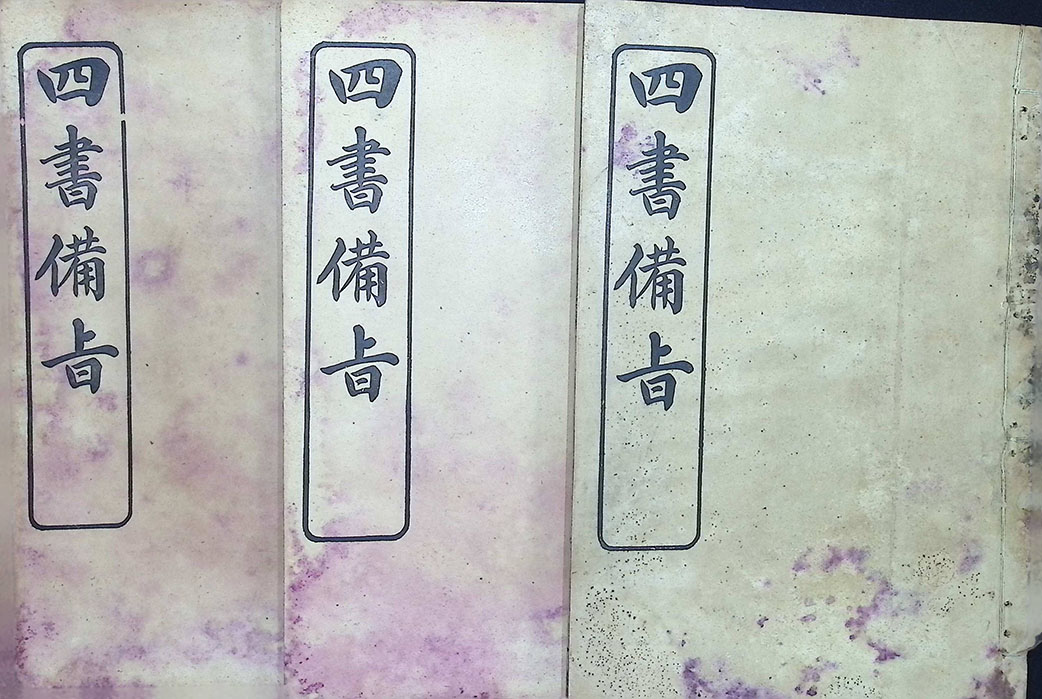 四書備旨
四書備旨
四書備旨